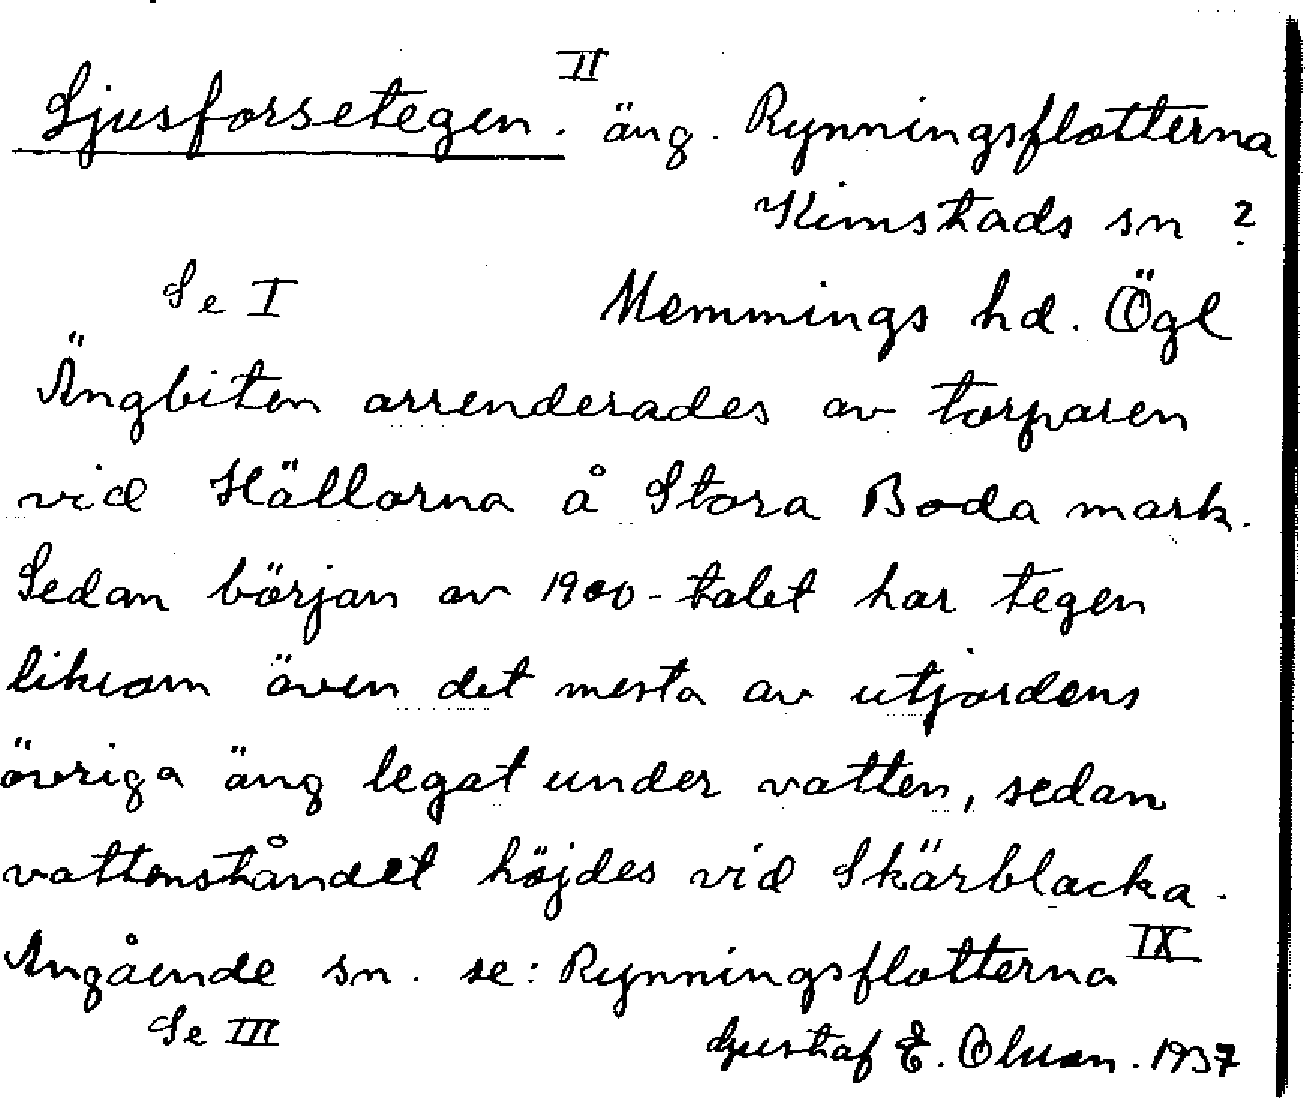 Ljusforsetegen. II äng. Rynningsflotterna
Kimstads sn ?
Se I Memmings hd. Ögl
Ängbiten arrenderades av torparen
vid Hällorna å Stora Boda mark.
Sedan början av 1900-talet har tegen
liksom även det mesta av utjordens
övriga äng legat under vatten, sedan
vattenståndet höjdes vid Skärblacka.
Angående sn. se: Rynningsflotterna IX
Se III Gustaf E. Olsson. 1937